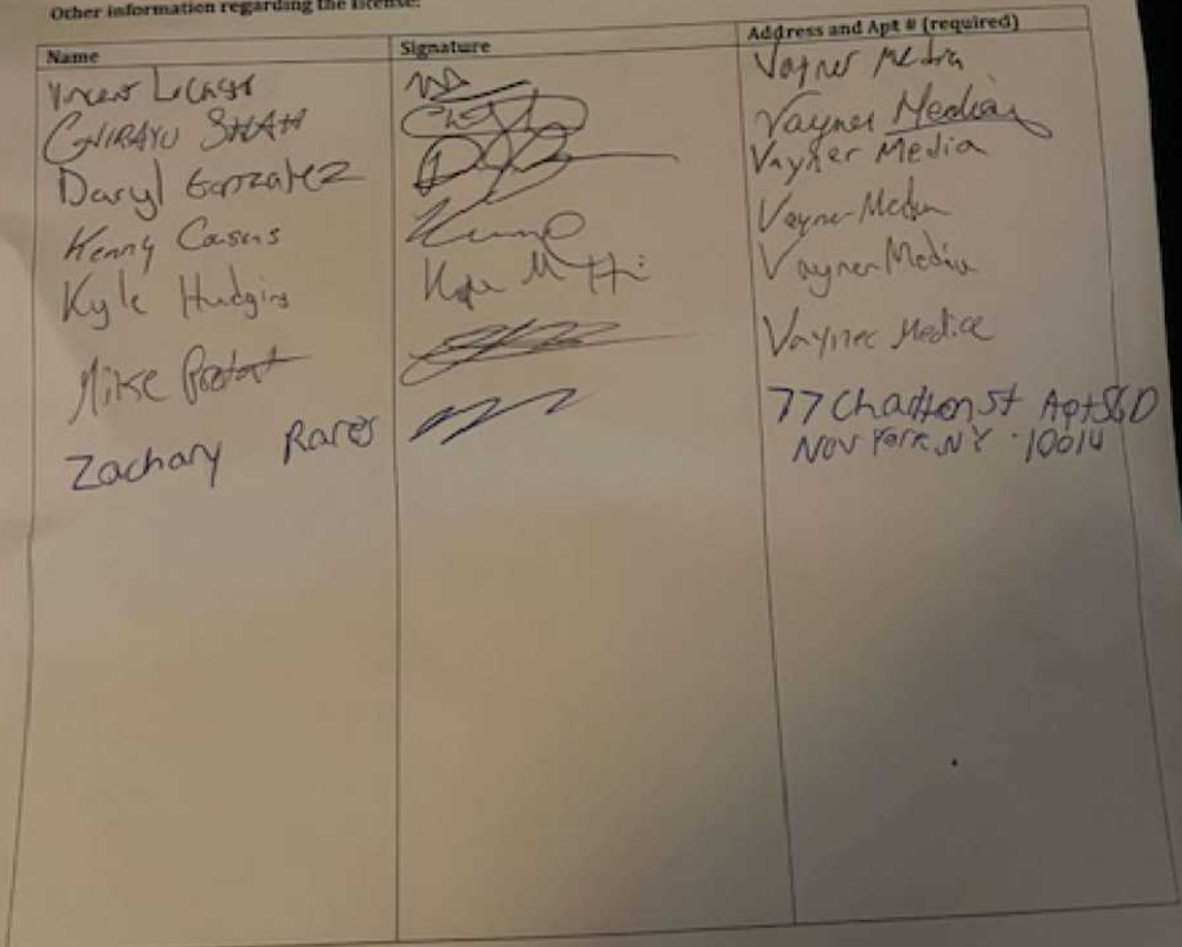 Other information regarding the license:
Name Signature Address and Apt # (required)
Vayner Media
CHIRAYU SHAH Vayner Media
Daryl Gonzalez Vayner Media
Kenny Casas Vayner Media
Kyle Hudgins Vayner Media
Mike Vayner Media
Zachary Rares 77 Charlton St Apt S6D
New York, NY 10014